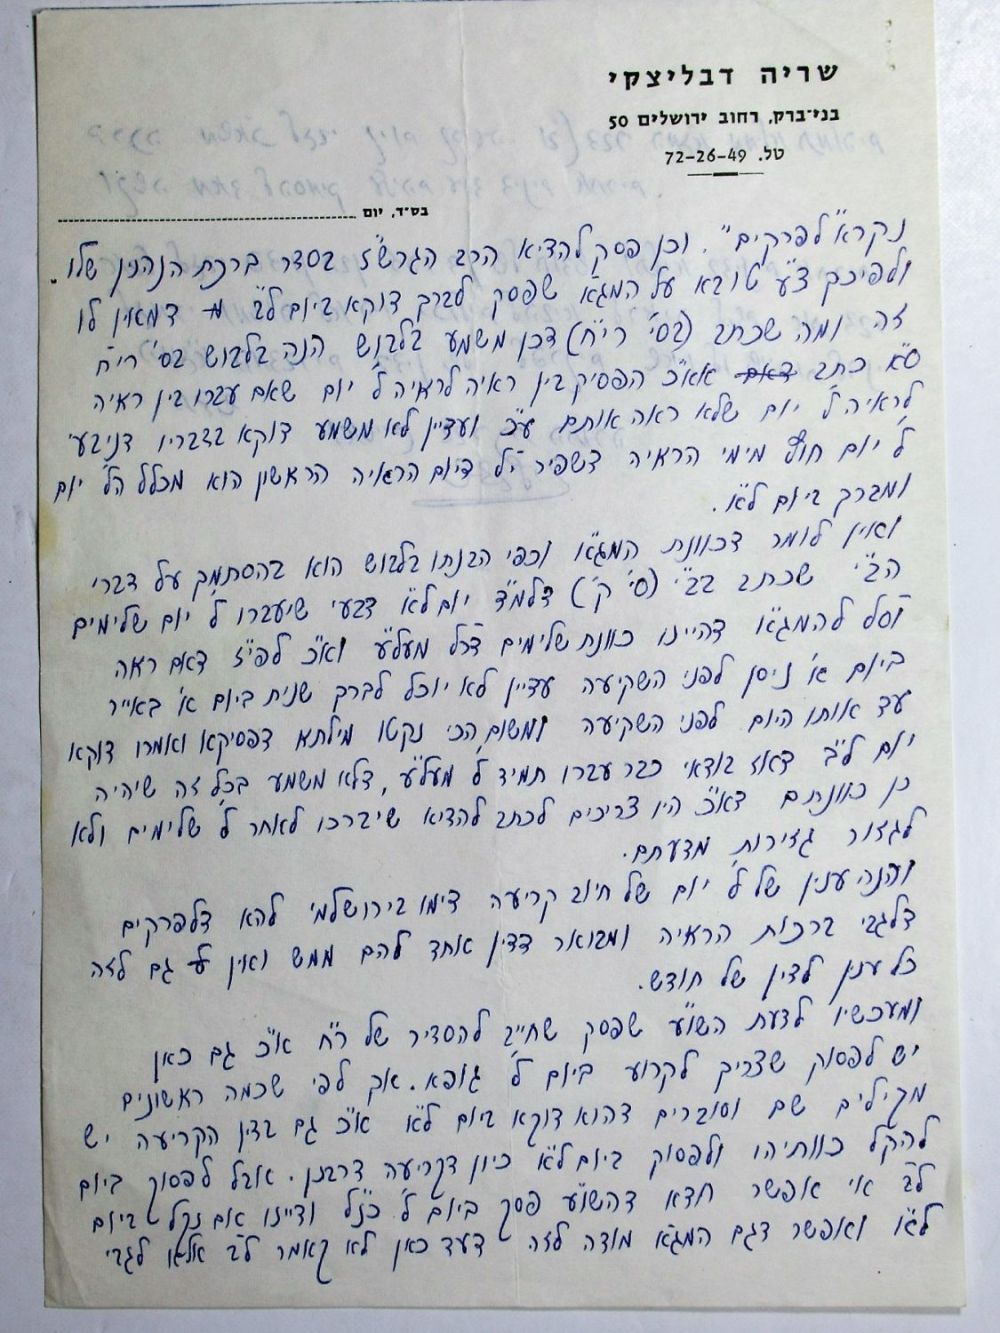 שריה דבליצקי
בני־ברק, רחוב ירושלים 50
טל. 72-26-49
בס״ד, יום
נקרא "לפרקים". וכן פסק להדיא הרב הגרש"ז בסדר ברכת הנהנין שלו.
ולפי"כ צ"ע טובא על המג"א שפסק לברך דוקא ביום ל"ב דמאין לו
זה ומה שכתב (בס' רי"ח) דכן משמע בלבוש הנה בלבוש בס' רי"ח
ס"א כתב אא"כ הפסיק בין ראיה לראיה ל' יום שאם עברו בין ראיה
לראיה ל' יום שלא ראה אותם ע"כ ועדיין לא משמע דוקא בדבריו דניבעי
ל' יום חוץ מימי הראיה דשפיר י"ל דיום הראיה הראשון הוא מכלל הל' יום
ומברך ביום ל"א.
ואין לומר דכוונת המג"א וכפי הבנתו בלבוש הוא בהסתמך על דברי
הב"י שכתב בב"י (ס' ק') דלמ"ד יום ל"א דבעי שיעברו ל' יום שלימים
וס"ל להמג"א דהיינו כוונת שלימים דכל מעל"ע וא"כ לפ"ז דאם ראה
ביום א' ניסן לפני השקיעה עדיין לא יוכל לברך שנית ביום א' באייר
עד אותו היום לפני השקיעה ומשום הכי נקטו מילתא דפסיקא ואמרו דוקא
יום ל"ב דאז בודאי כבר עברו תמיד ל' מעל"ע, דלא משמע בכל זה שיהיה
כן כוונתם דא"כ היו צריכים לכתב להדיא שיברכו לאחר ל' שלימים ולא
לגזור גזירות מדעתם.
והנה ענין של ל' יום של חיוב קריעה דימו בירושלמי להא דלפרקים
דלגבי ברכות הראיה ומבואר דדין אחד להם ממש ואין גם לזה
כל ענין לדין של חודש.
ומעכשיו לדעת השו"ע שפסק שחייב להסדיר של ר"ח א"כ גם כאן
יש לפסוק שצריך לקרוע ביום ל' גופא. אך לפי שכמה ראשונים
מקילים שם וסוברים דהוא דוקא ביום ל"א א"כ גם בדין הקריעה יש
להקל כוותיהו ולפסוק ביום ל"א כיון דקריעה דרבנן. אבל לפסוק ביום
ל"ב אי אפשר חדא דהשו"ע פסק ביום ל' כנ"ל ודיינו אם נקל ביום
ל"א ואפשר דגם המג"א מודה לזה דעד כאן לא קאמר ל"ב אלא לגבי